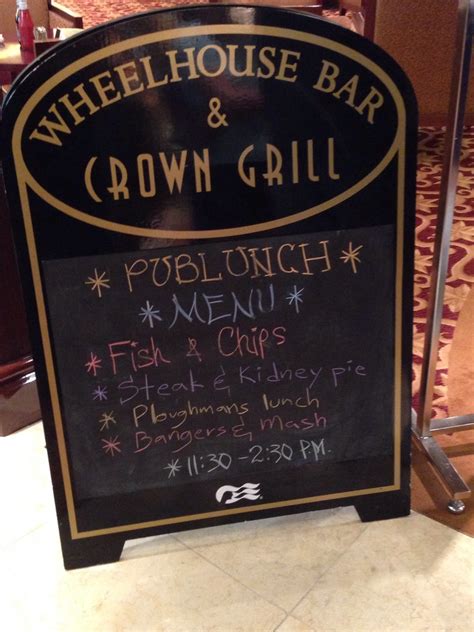 WHEELHOUSE BAR
&
CROWN GRILL
* PUB LUNCH *
* MENU *
* Fish & Chips
* Steak & Kidney pie
* Ploughmans lunch
* Bangers & Mash
* 11:30 - 2:30 P.M.